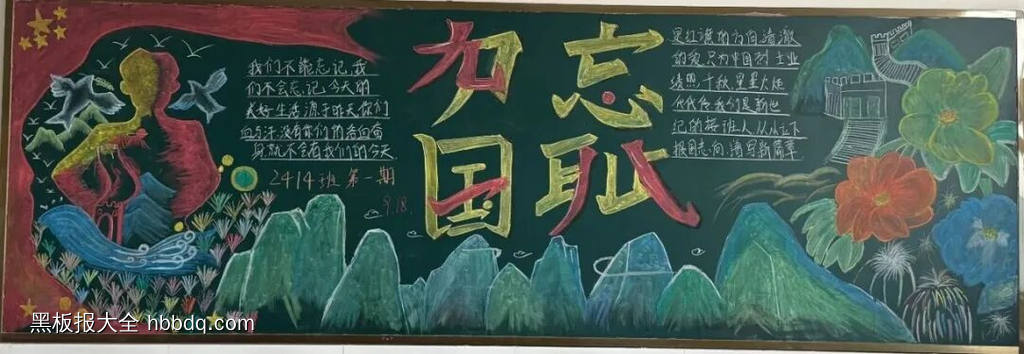 勿忘
国耻
我们不能忘记,我
们不会忘记,今天的
美好生活源于昨天你们
血与汗没有你们的舍
身,就不会有我们的今天
2414班 第一期
9.18.
红旗的为
的爱,只为中国 业
绩照千秋,星星火炬
代代传我们是新世
记的接班人从小立下
报国志向 谱写新篇章
黑板报大全 hbbdq.com